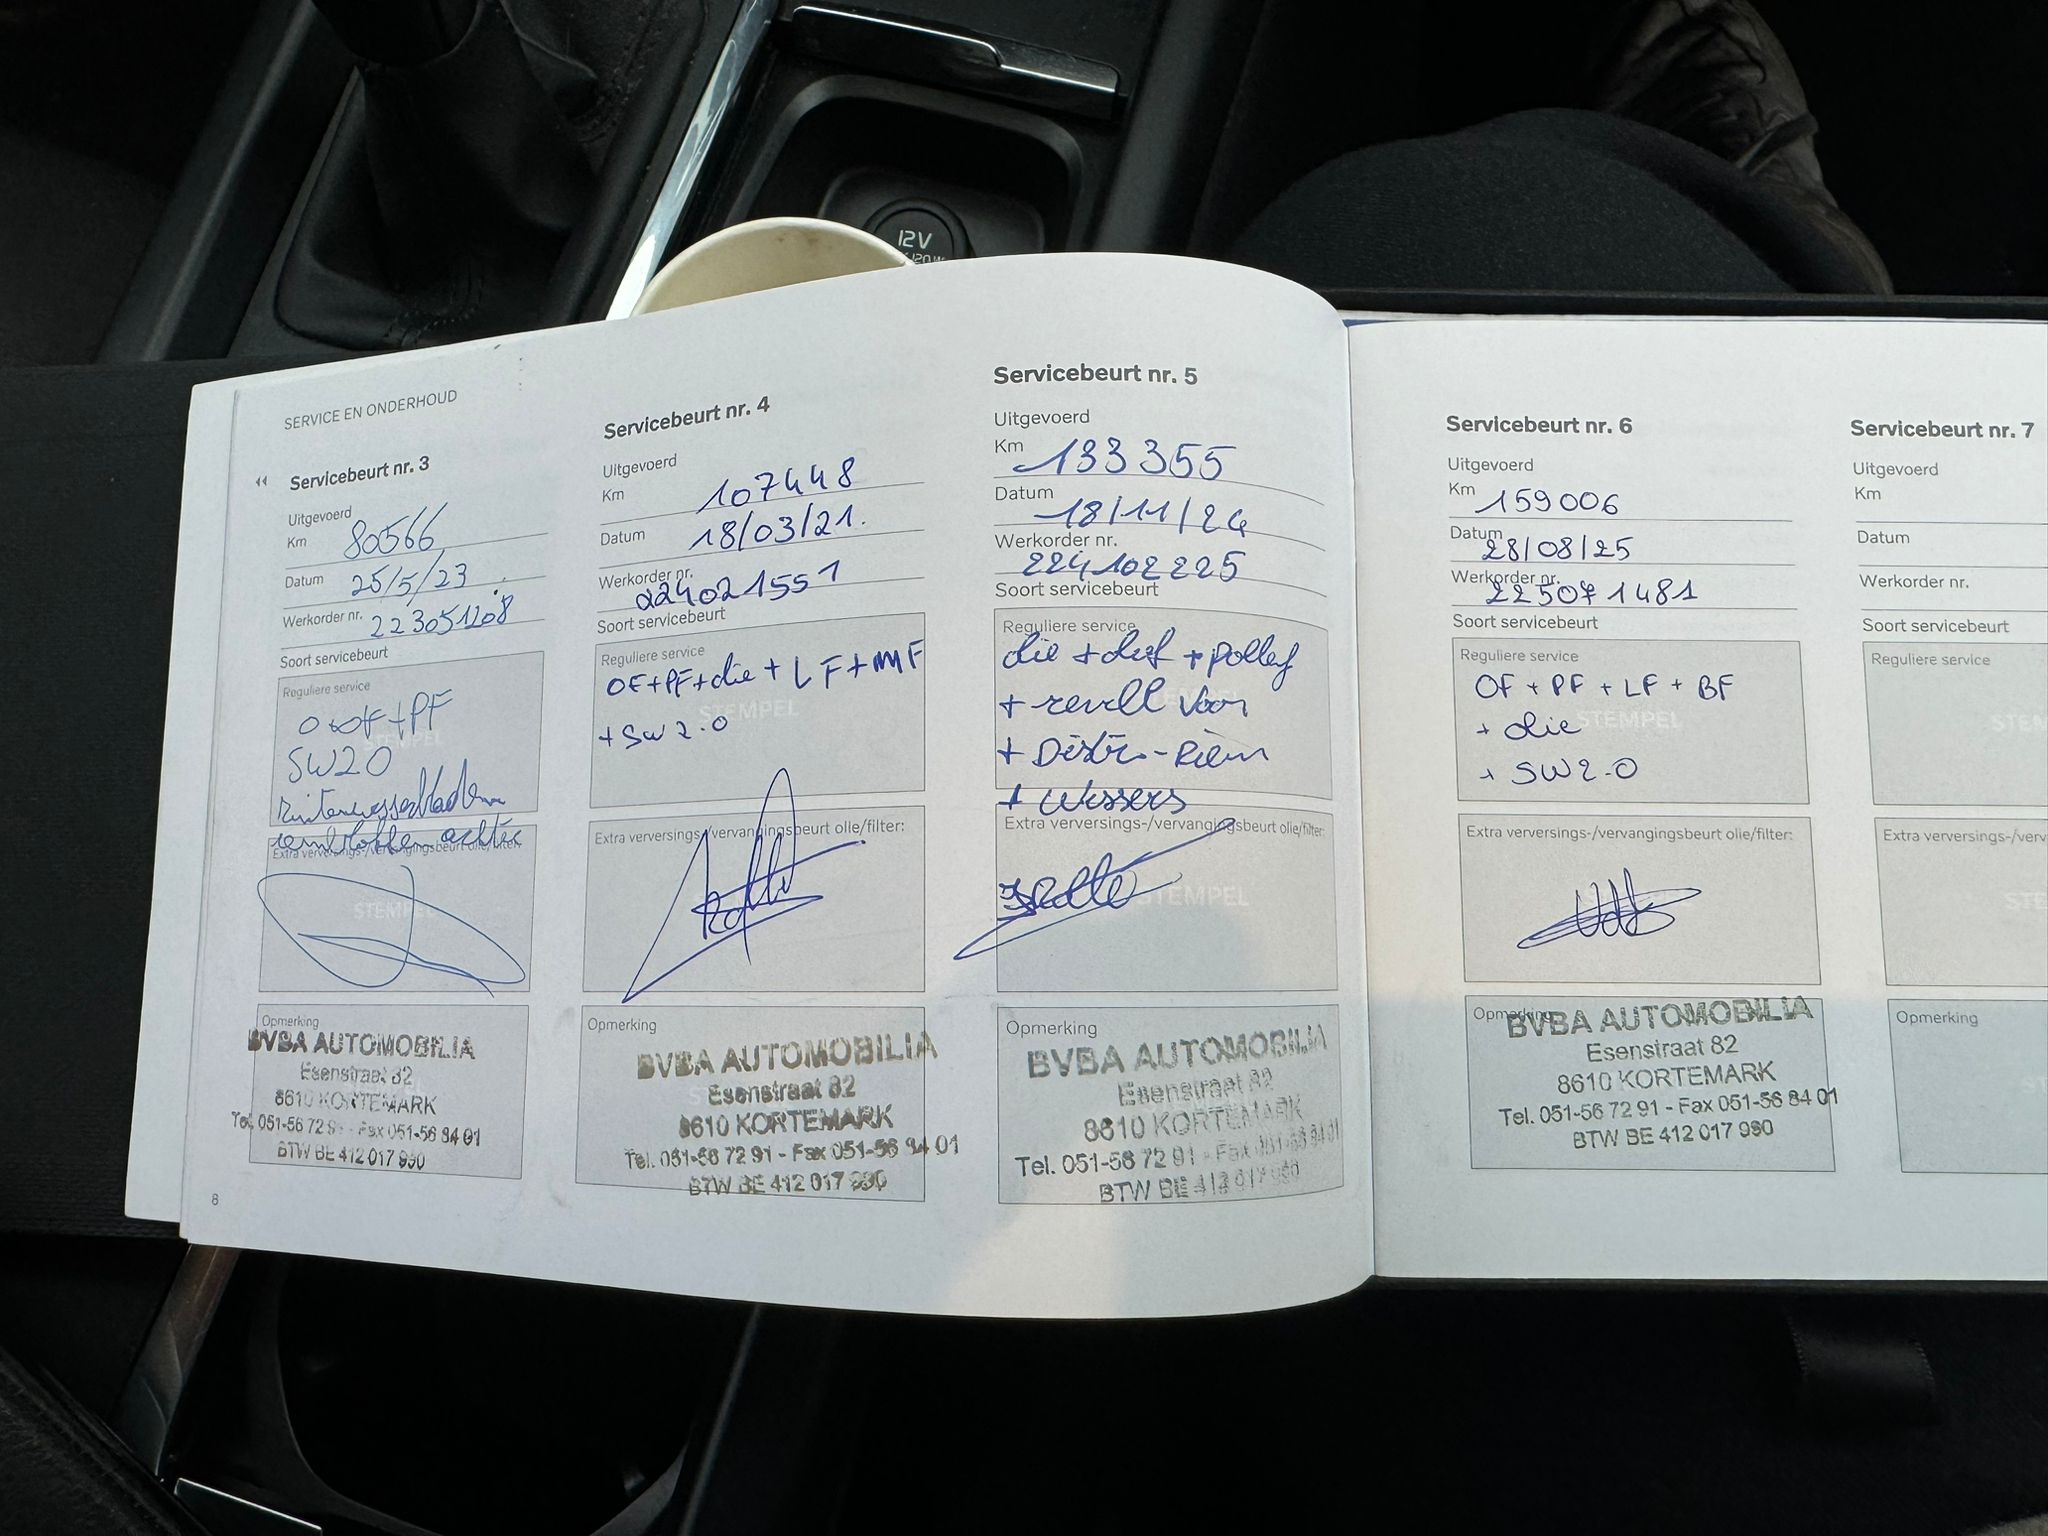 12V
120W
SERVICE EN ONDERHOUD
Servicebeurt nr. 3
Uitgevoerd
Km 80566
Datum 25/5/23
Werkorder nr. 223051208
Soort servicebeurt
Reguliere service
OF+PF
SW20
Ruitenwisserbladen
remblokken achter
Extra verversings-/vervangingsbeurt olie/filter:
STEMPEL
Opmerking
BVBA AUTOMOBILIA
Esenstraat 82
8610 KORTEMARK
Tel. 051-56 72 91 - Fax 051-56 84 01
BTW BE 412 017 990
8
Servicebeurt nr. 4
Uitgevoerd
Km 107448
Datum 18/03/21.
Werkorder nr. 224021551
Soort servicebeurt
Reguliere service
OF+PF+olie+LF+MF
STEMPEL
+ SW 2.0
Extra verversings-/vervangingsbeurt olie/filter:
Opmerking
BVBA AUTOMOBILIA
Esenstraat 82
8610 KORTEMARK
Tel. 051-56 72 91 - Fax 051-56 84 01
BTW BE 412 017 990
Servicebeurt nr. 5
Uitgevoerd
Km 133355
Datum 18/11/24
Werkorder nr.
224102225
Soort servicebeurt
Reguliere service
olie + olief + pollenf
+ voor
+ Distri-Riem
Extra verversings-/vervangingsbeurt olie/filter:
STEMPEL
Opmerking
BVBA AUTOMOBILIA
Esenstraat 82
8610 KORTEMARK
Tel. 051-56 72 91 - Fax 051-56 84 01
BTW BE 412 017 990
Servicebeurt nr. 6
Uitgevoerd
Km 159006
Datum 28/08/25
Werkorder nr. 225071481
Soort servicebeurt
Reguliere service
OF + PF + LF + BF
STEMPEL
+ olie
+ SW2.0
Extra verversings-/vervangingsbeurt olie/filter:
Opmerking
BVBA AUTOMOBILIA
Esenstraat 82
8610 KORTEMARK
Tel. 051-56 72 91 - Fax 051-56 84 01
BTW BE 412 017 990
Servicebeurt nr. 7
Uitgevoerd
Km
Datum
Werkorder nr.
Soort servicebeurt
Reguliere service
STEM
Extra verversings-/verv
STE
Opmerking